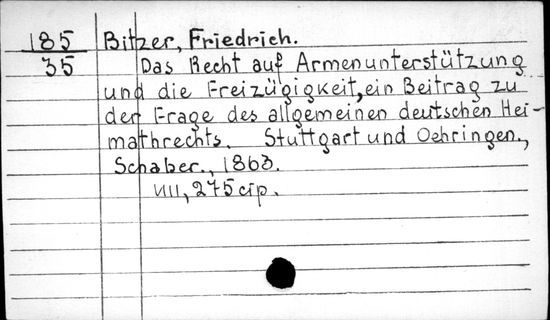 185 Bitzer, Friedrich.
35 Das Recht auf Armenunterstützung
und die Freizügigkeit, ein Beitrag zu
der Frage des allgemeinen deutschen Hei-
mathrechts. Stuttgart und Oehringen.,
Schaber., 1863.
VIII, 275 cip.